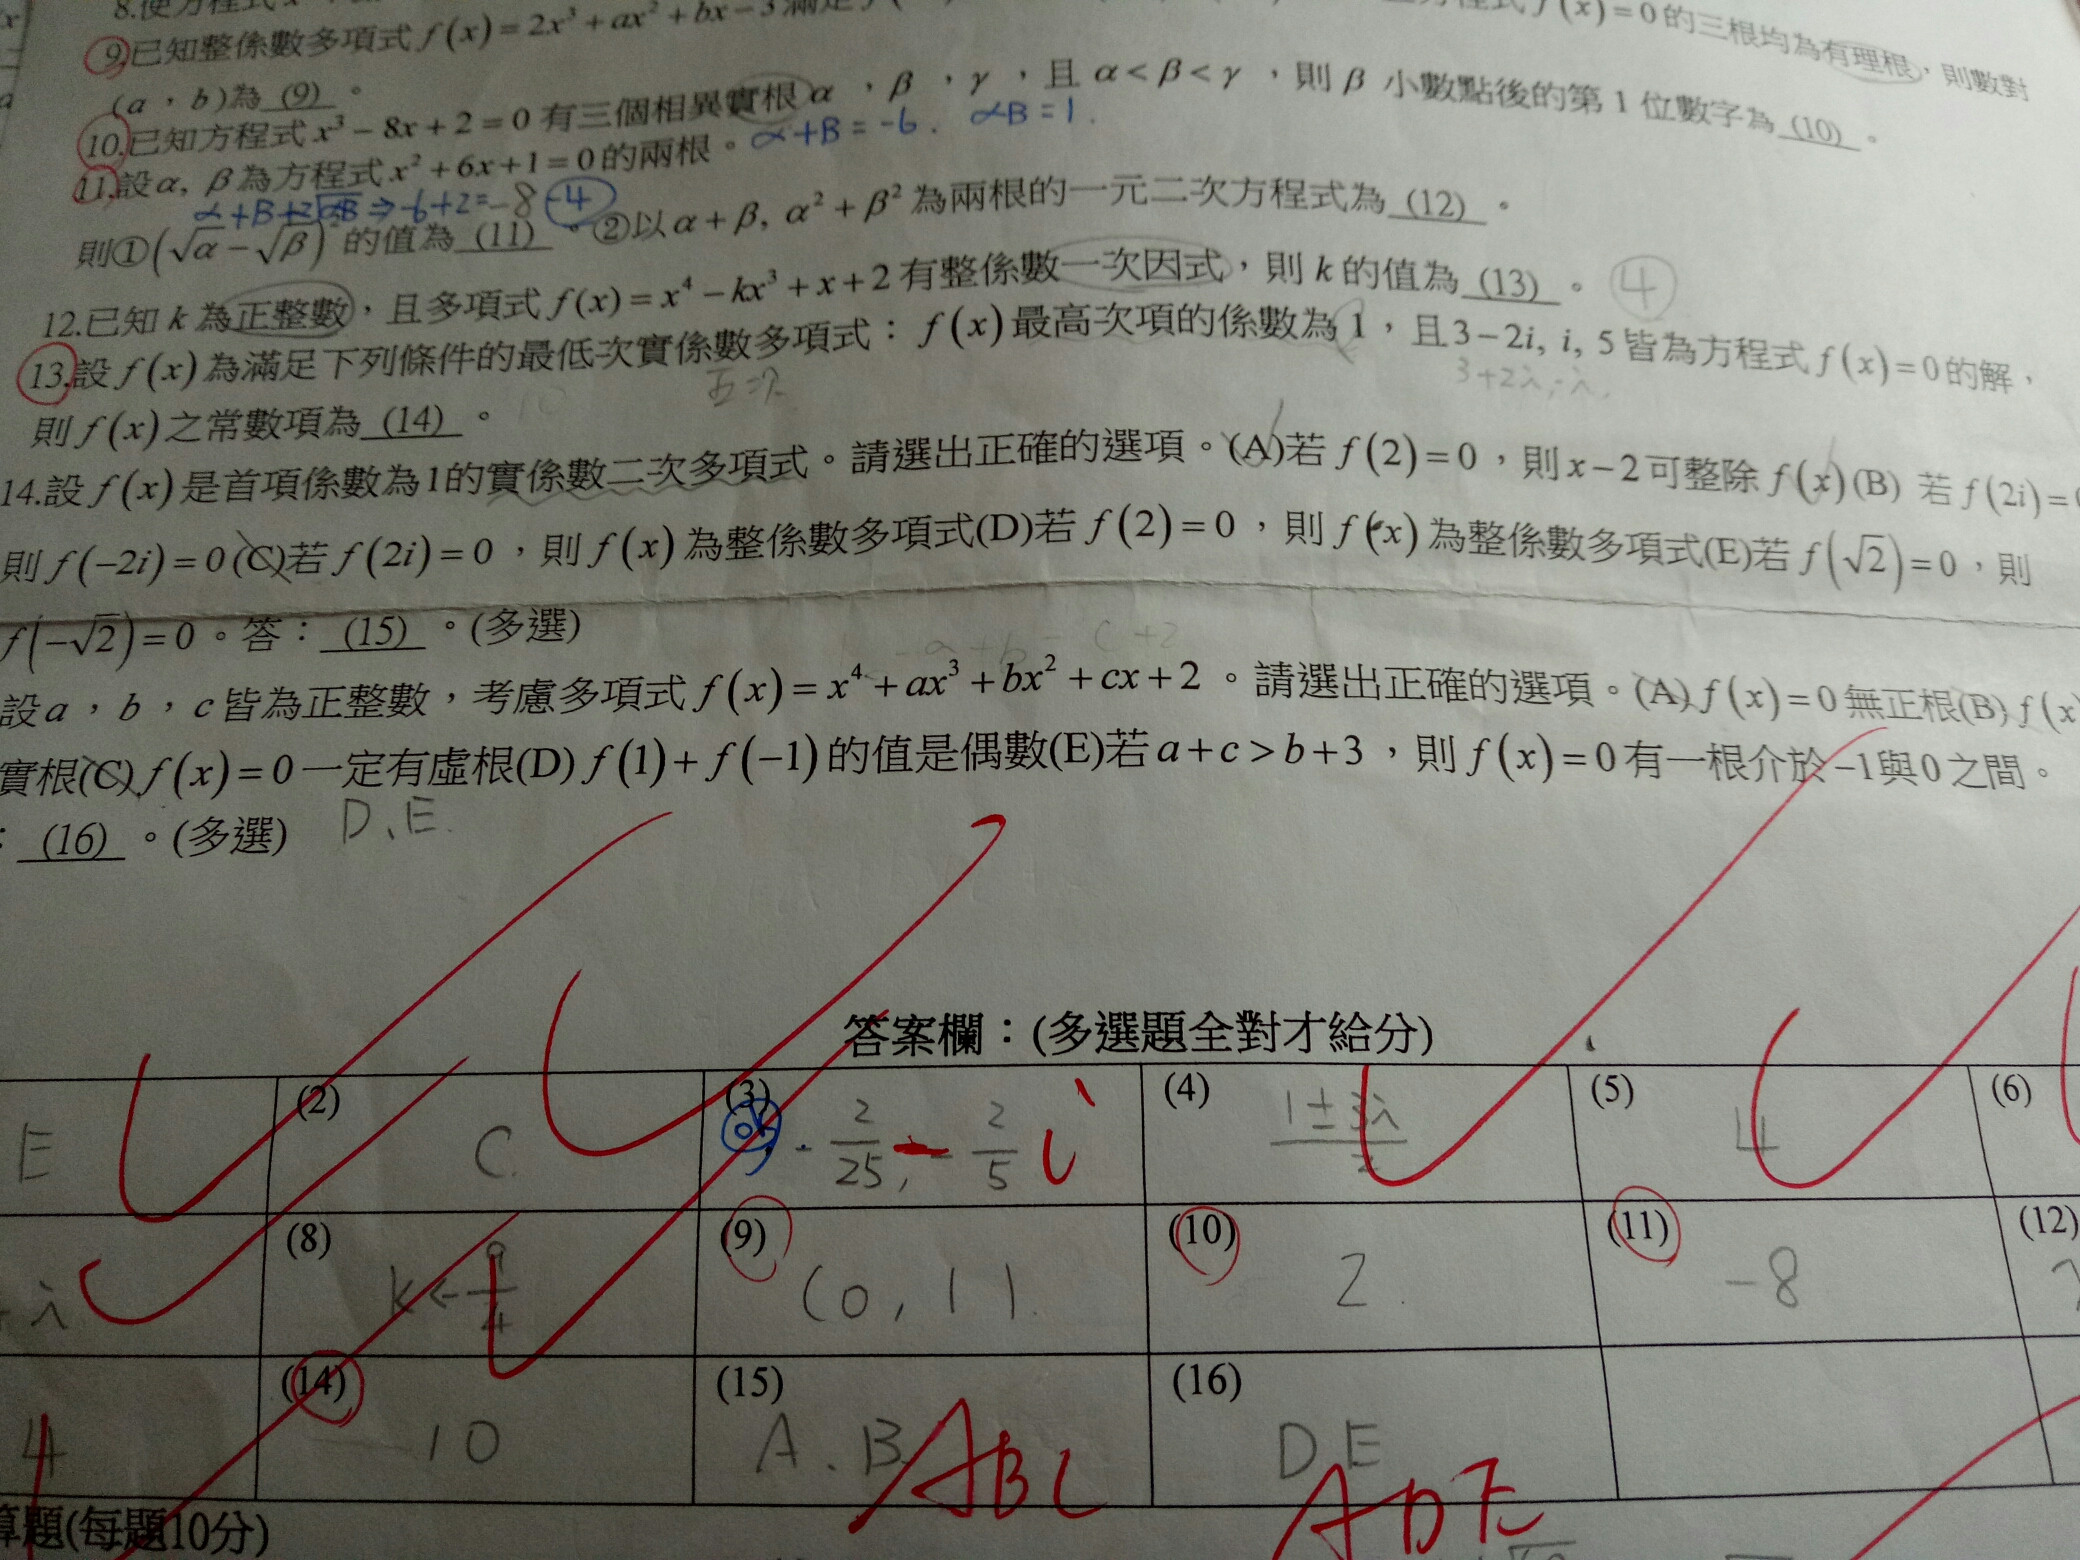 8.使方程式
9.已知整係數多項式 f(x)=2x³+ax²+bx−3 滿足 f(x)=0的三根均為有理根，則數對
(a，b)為 (9) 。
10.已知方程式 x³−8x+2=0 有三個相異實根 α，β，γ，且 α<β<γ，則 β 小數點後的第 1 位數字為 (10) 。
11.設α, β為方程式 x²+6x+1=0的兩根。 α+β=-6. αβ=1.
α+β+2√αβ ⇒ -6+2=-8 -4
則①(√α−√β)²的值為 (11) 。②以α+β, α²+β²為兩根的一元二次方程式為 (12) 。
12.已知 k 為正整數，且多項式 f(x)=x⁴−kx³+x+2 有整係數一次因式，則 k 的值為 (13) 。 4
13.設 f(x) 為滿足下列條件的最低次實係數多項式：f(x)最高次項的係數為1，且3−2i, i, 5皆為方程式 f(x)=0的解，
五次 3+2i, -i.
則 f(x)之常數項為 (14) 。 10
14.設 f(x)是首項係數為1的實係數二次多項式。請選出正確的選項。(A)若 f(2)=0，則x−2可整除 f(x)(B) 若 f(2i)=0
則 f(−2i)=0(C)若 f(2i)=0，則 f(x) 為整係數多項式(D)若 f(2)=0，則 f(x) 為整係數多項式(E)若 f(√2)=0，則
f(−√2)=0。答： (15) 。(多選)
-a+b-c+2
設a，b，c皆為正整數，考慮多項式 f(x)=x⁴+ax³+bx²+cx+2。請選出正確的選項。(A) f(x)=0無正根(B) f(x)
實根(C) f(x)=0一定有虛根(D) f(1)+f(−1)的值是偶數(E)若a+c>b+3，則 f(x)=0有一根介於−1與0之間。
： (16) 。(多選) D、E.
答案欄：(多選題全對才給分)
(2) (3) (4) (5) (6)
E C. ok -2/25, - 2/5 i 1±3i/2 4
(8) (9) (10) (11) (12)
i k<-9/4 (0,1). 2. -8
(14) (15) (16)
4 -10 A.B ABC D.E ADE
算題(每題10分)